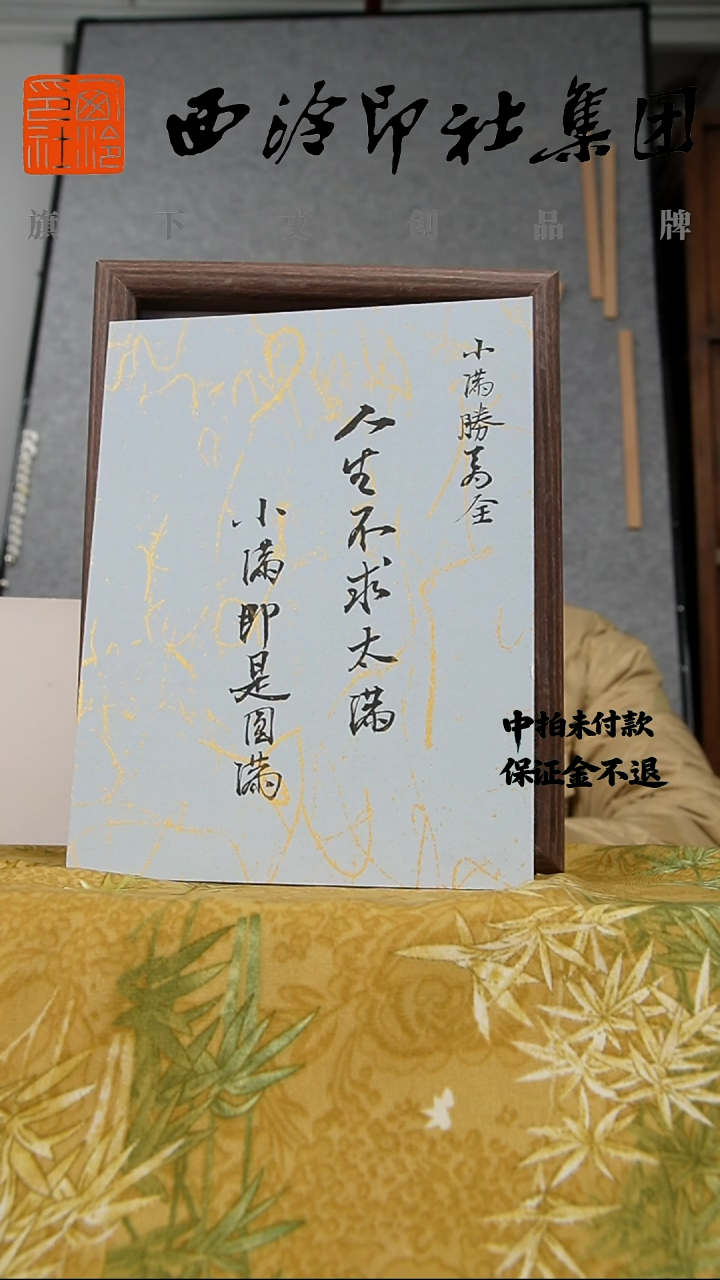 西泠印社
西泠印社集团
旗下文创品牌
小满勝万全
人生不求太满
小满即是圆满
中拍未付款
保证金不退